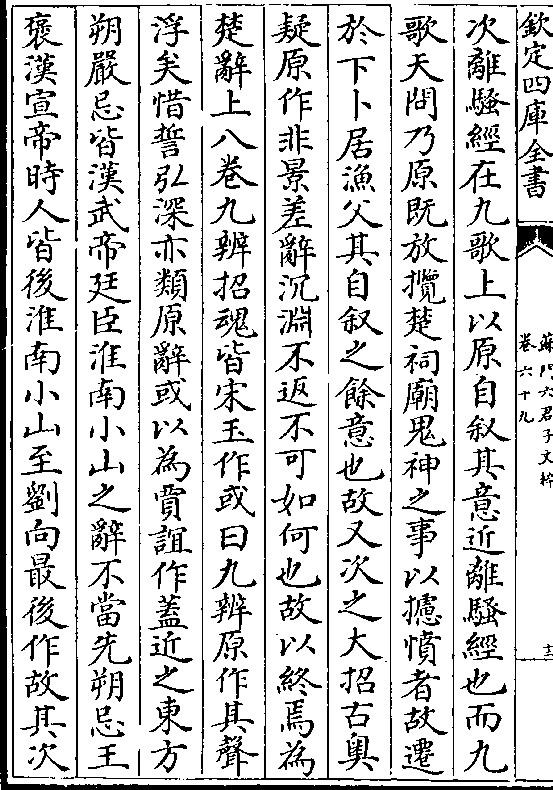 欽定四庫全書
蘇門六君子文粹
卷六十九
十三
次離騷經在九歌上以原自叙其意近離騷經也而九
歌天問乃原既放攬楚祠廟鬼神之事以攄憤者故遷
於下卜居漁父其自叙之餘意也故又次之大招古奧
疑原作非景差辭沉淵不返不可如何也故以終焉為
楚辭上八卷九辨招魂皆宋玉作或曰九辨原作其聲
浮矣惜誓弘深亦類原辭或以為賈誼作蓋近之東方
朔嚴忌皆漢武帝廷臣淮南小山之辭不當先朔忌王
褒漢宣帝時人皆後淮南小山至劉向最後作故其次